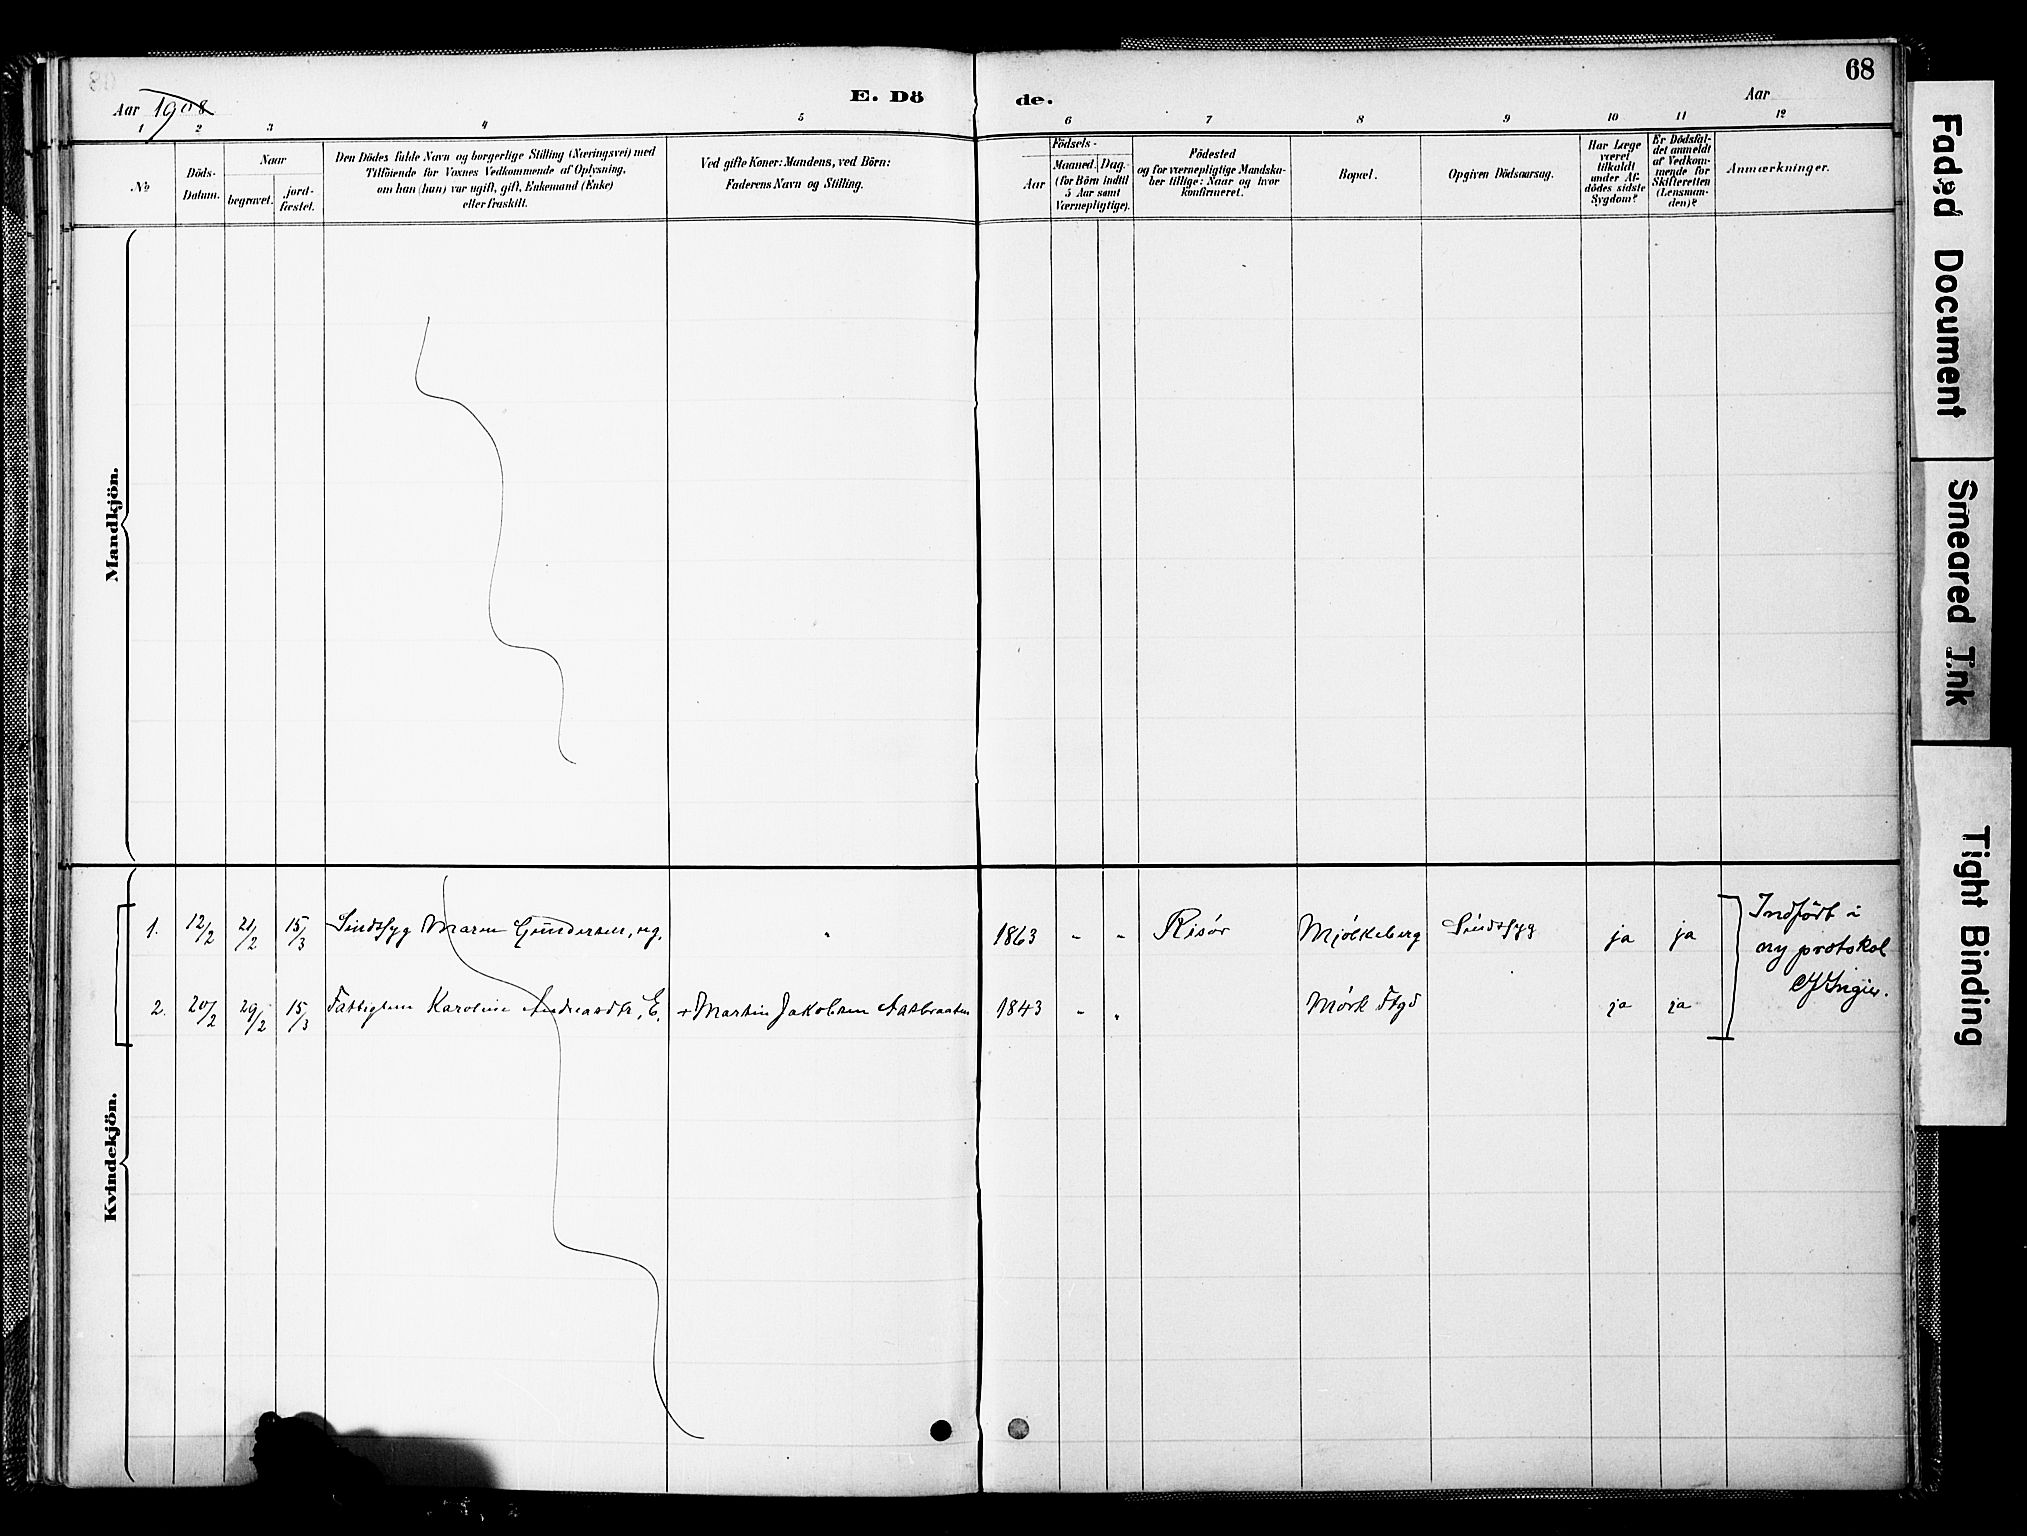 68
Aar 1908
E. Dö de.
Aar
1 2 3 4 5 6 7 8 9 10 11 12
No
Döds-
Datum.
Naar
begravet.
jord-
fæstet.
Den Dödes fulde Navn og borgerlige Stilling (Næringsvei) med
Tilföiende for Voxnes Vedkommende af Oplysning,
om han (hun) var ugift, gift, Enkemand (Enke)
eller fraskilt.
Ved gifte Koner: Mandens, ved Börn:
Faderens Navn og Stilling.
Födsels-
Aar
Maaned. Dag.
(for Börn indtil
5 Aar samt
Værnepligtige).
Födested
og for værnepligtige Mandska-
ber tillige: Naar og hvor
konfirmeret.
Bopæl.
Opgiven Dödsaarsag.
Har Læge
været
tilkaldt
under Af-
dödes sidste
Sygdom?
Er Dödsfal-
det anmeldt
af Vedkom-
mende for
Skifteretten
(Lensman-
den)?
Anmærkninger.
Mandkjön.
Kvindekjön.
1. 12/2 21/2 15/3 Sindssyg Maren Gundersen, ug. " 1863 " " Risør Mjølkeberg Sindssyg ja ja
2. 20/2 29/2 15/3 Fattiglem Karoline Andreasdtr, E. + Martin Jakobsen Aasbraaten 1843 " " Mørk Flgd ja ja
Indført i
ny protokol
Faded Document
Smeared Ink
Tight Binding